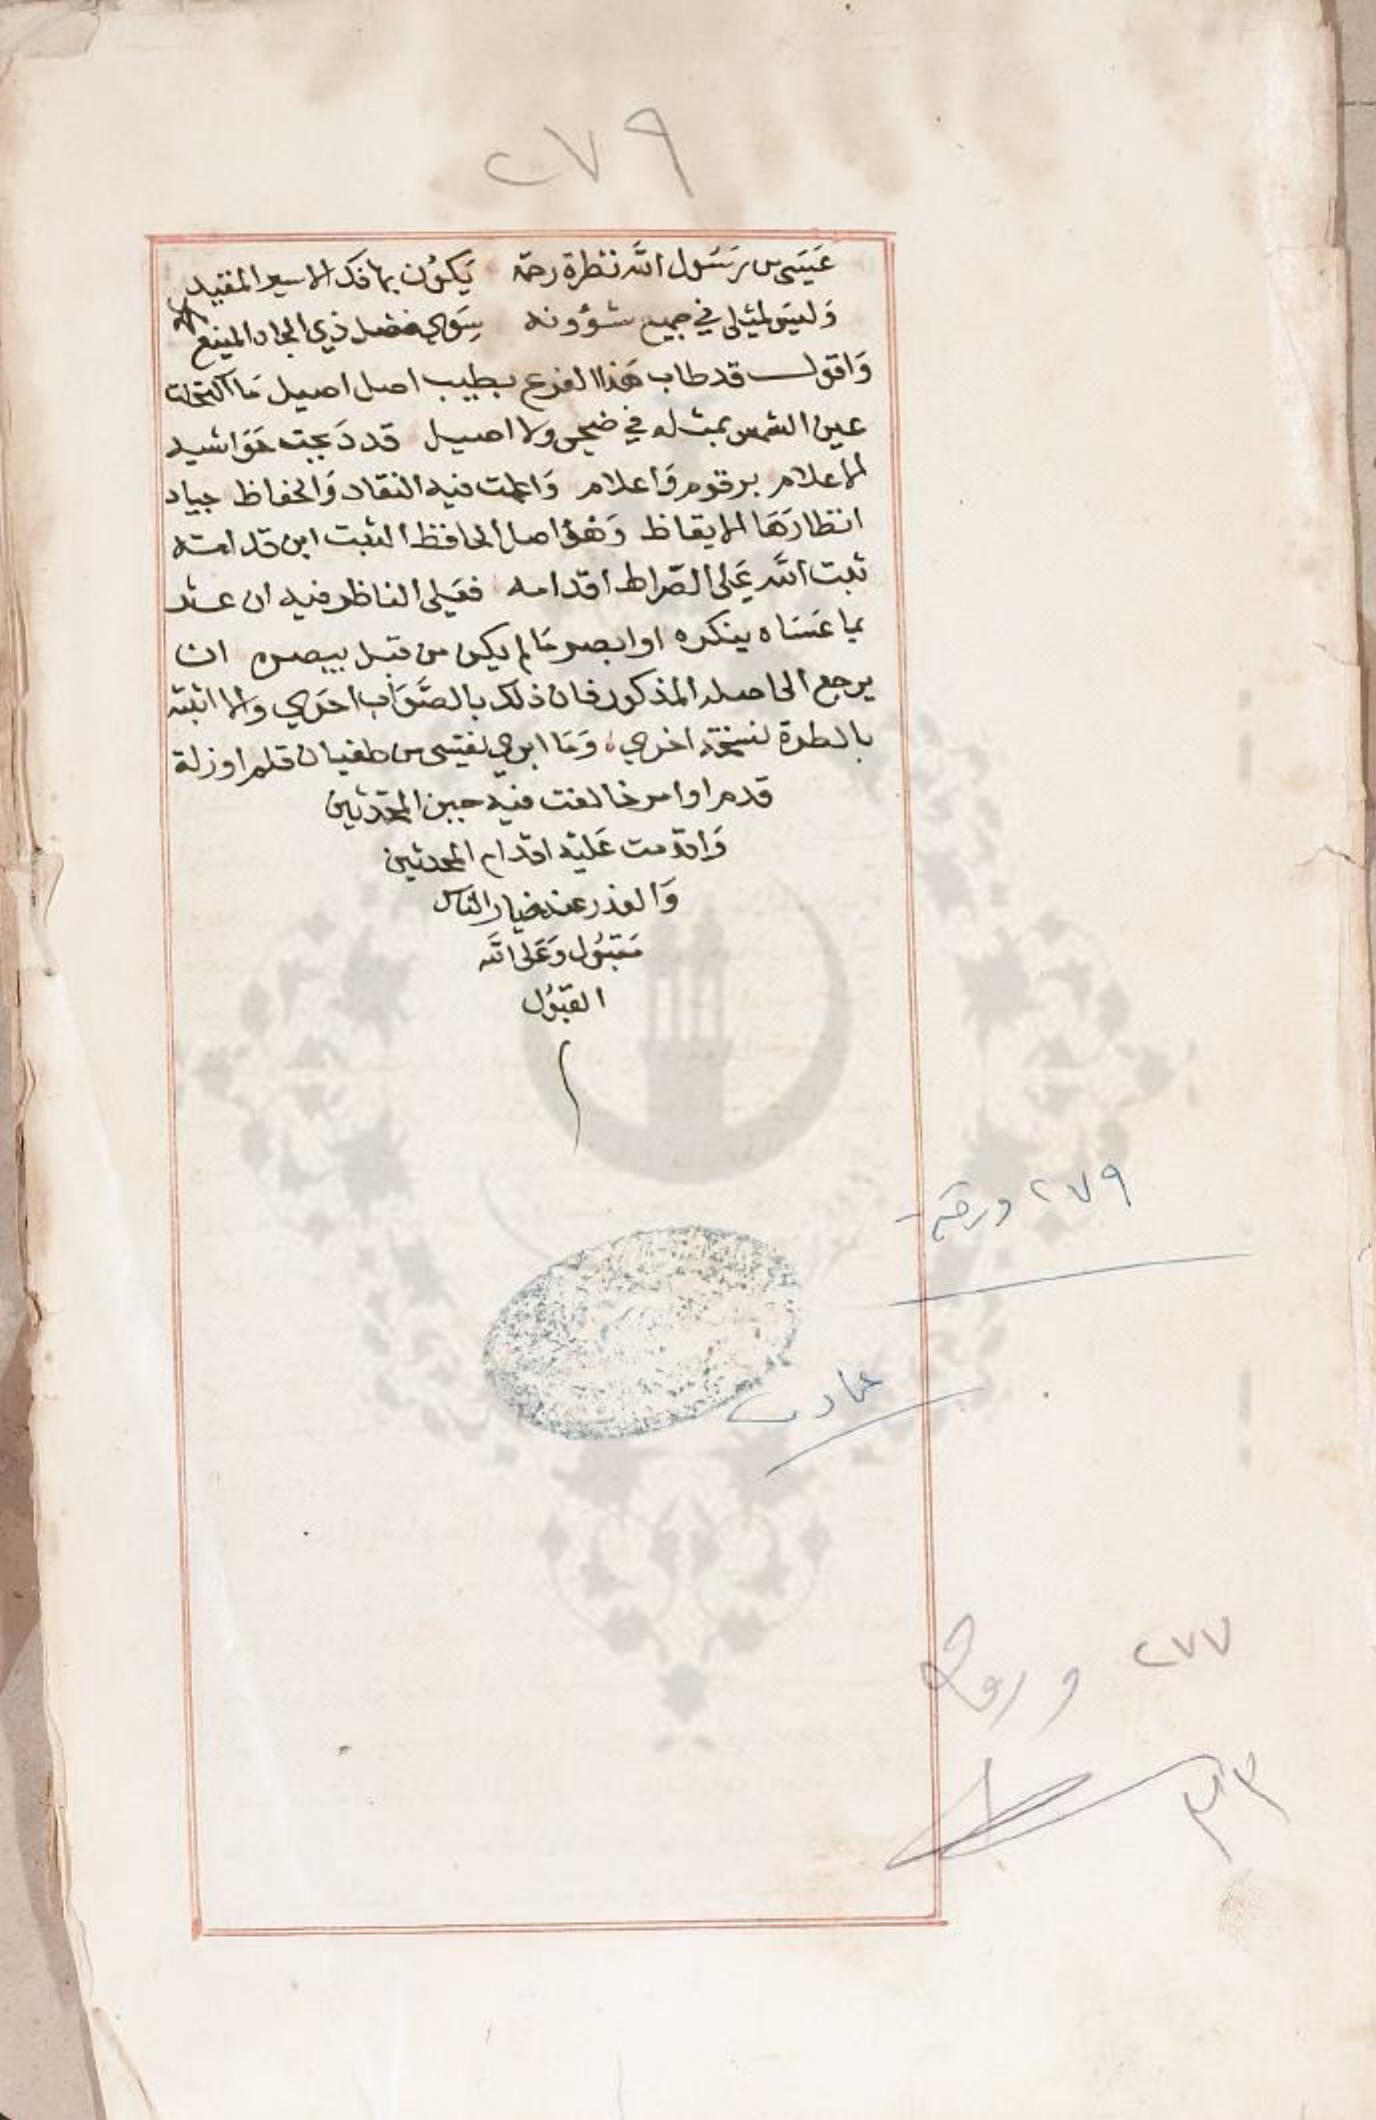 ٢٧٩
عَيَسَى من رَسُول الله نظرة رحمة يَكوُن بها فك الاسير المقيد
وَليَس لمثلي في جميع شؤونه سِوَي فضل ذي الجاه المنيع
وَاقول قد طاب هَذا الفرع بطيب اصل اصيل مَا اكتحلت
عين الشمس بمثله في ضحى ولا اصيل قد دَبجت حَوَاشيه
الاعلام برقوم وَاعلام وَاعلمت فيه النقاد وَالحفاظ جياد
انظارَهَا الايقاظ وَهُوَ اصل الحافظ الثبت ابن قدامه
ثبت الله عَلى الصّراط اقدامه فعَلى الناظر فيه ان عثر
بما عَسَاه ينكره او ابصر مَا لم يكن من قبل يبصره ان
يرجع الى اصله المذكور فان ذلك بالصَّوَاب احرَي والا اثبته
بالطرة لنسخة اخرى وَمَا ابري نفسَي من طغيان قلم او زلة
قدم او امر خالفت فيه جبن المحَدثين
وَاقدمت عَليَه اقدام المحدثين
وَالعذر عند خيار الناس
مَقبُول وَعَلى الله
القبُول
٢٧٩ ورقة
٢٧٧ ورقة